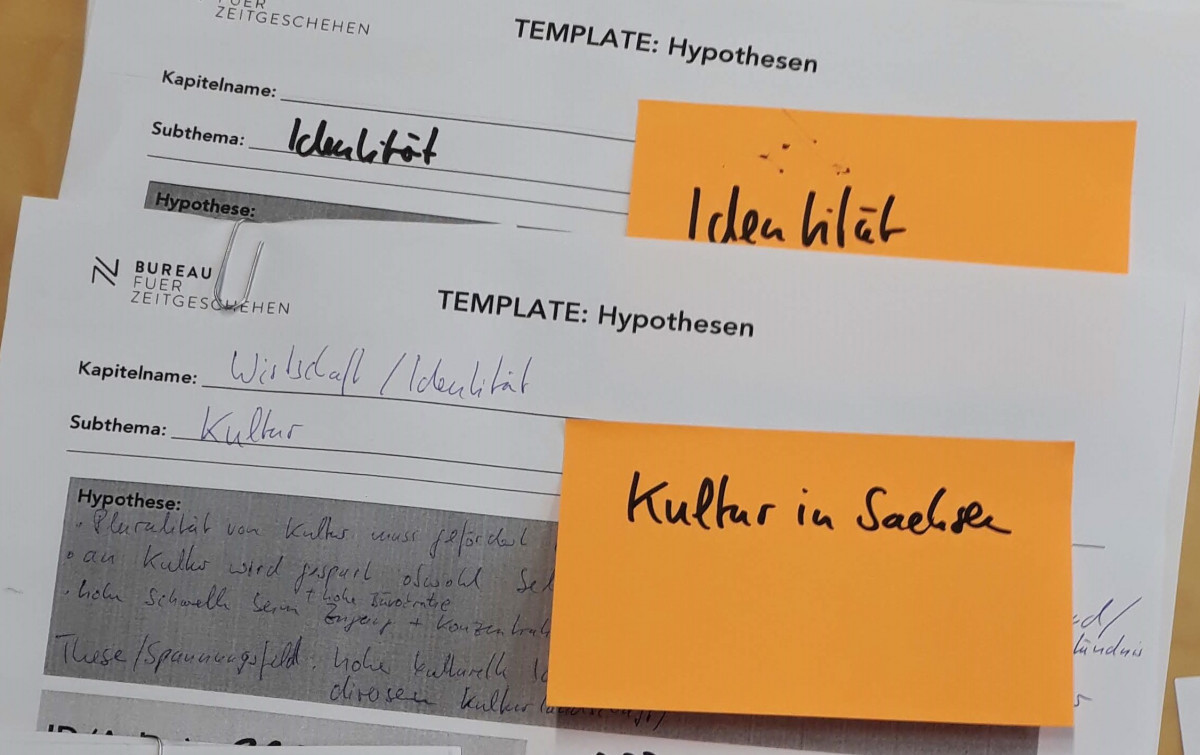 FUER
ZEITGESCHEHEN
TEMPLATE: Hypothesen
Kapitelname:
Subthema: Identität
Identität
Hypothese:
BUREAU
FUER
ZEITGESCHEHEN
TEMPLATE: Hypothesen
Kapitelname: Wirtschaft / Identität
Subthema: Kultur
Kultur in Sachsen
Hypothese:
• Pluralität von Kultur muss gefördert
• an Kultur wird gespart obwohl
+ hohe Bürokratie
• hohe Schwelle beim Zugang +
These/Spannungsfeld: hohe kulturelle
diversen